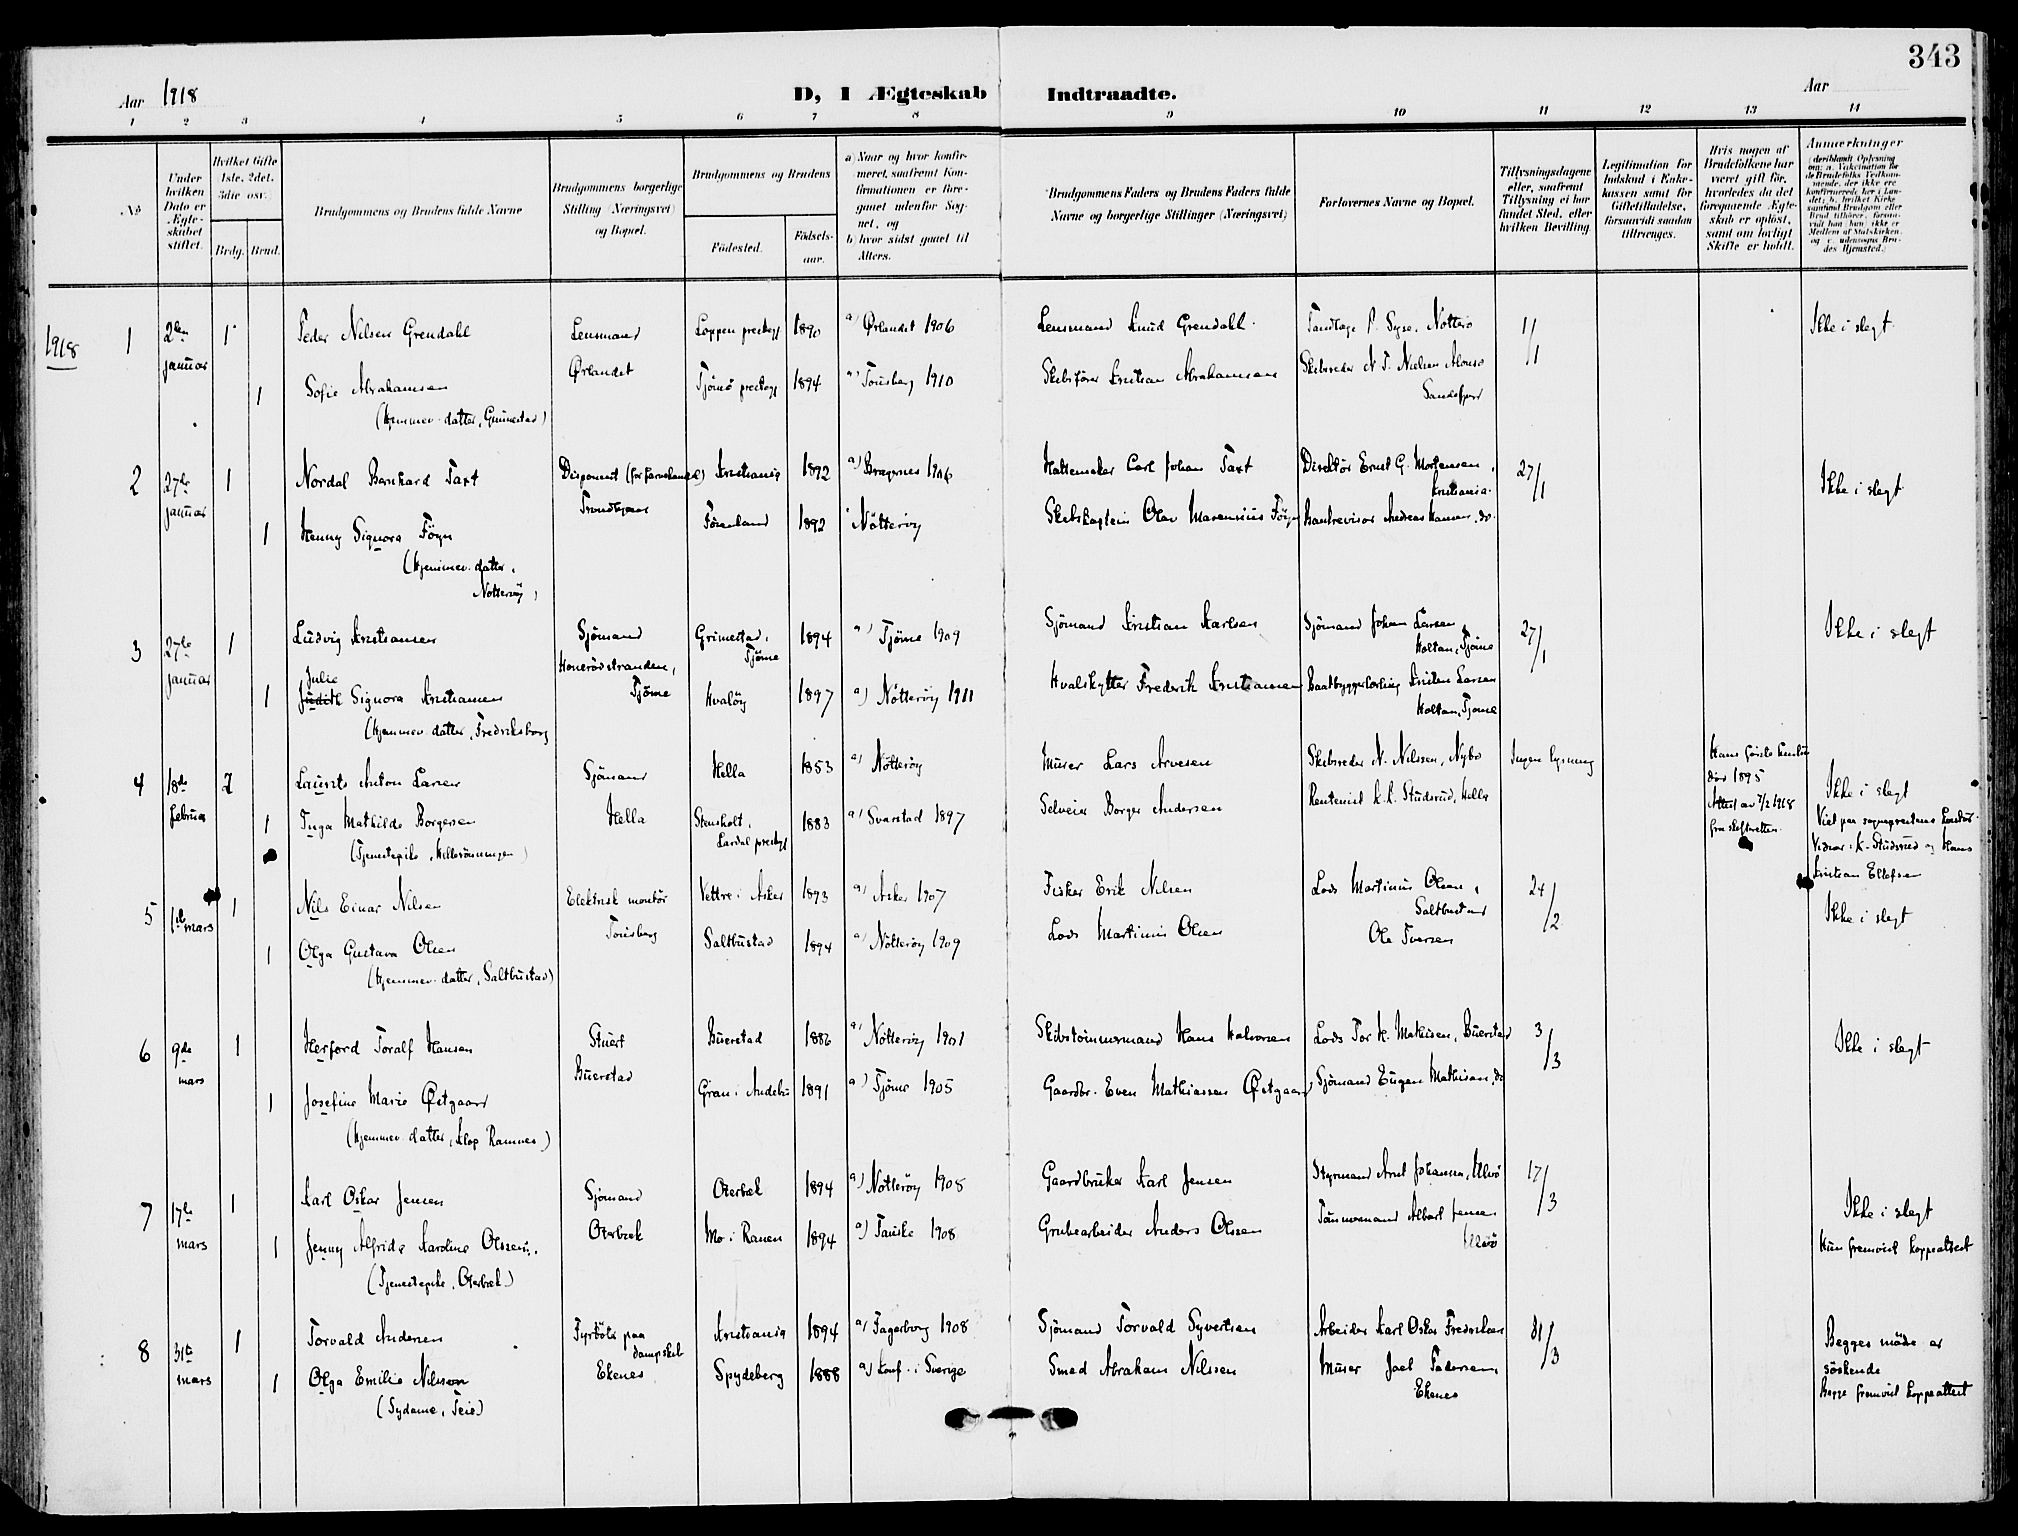 343
Aar 1918
D, I Ægteskab Indtraadte.
Aar
1 2 3 4 5 6 7 8 9 10 11 12 13 14
No
Under hvilken Dato er Ægteskabet stiftet.
Hvilket Gifte 1ste, 2det, 3die osv.
Brdg. Brud.
Brudgommens og Brudens fulde Navne
Brudgommens borgerlige Stilling (Næringsvei) og Bopæl.
Brudgommens og Brudens
Fødested.
Fødselsaar.
a) Naar og hvor konfirmeret, saafremt Konfirmationen er foregaaet udenfor Sognet, og
b) hvor sidst gaaet til Alters.
Brudgommens Faders og Brudens Faders fulde Navne og borgerlige Stillinger (Næringsvei)
Forlovernes Navne og Bopæl.
Tillysningsdagene eller, saafremt Tillysning ei har fundet Sted, efter hvilken Bevilling.
Legitimation for Indskud i Enkekassen samt for Giftetilladelse, forsaavidt saadan tiltrænges.
Hvis nogen af Brudefolkene har været gift før, hvorledes da det foregaaende Ægteskab er opløst, samt om lovligt Skifte er holdt.
Anmærkninger
(deriblandt Oplysning om: a. Vaksination for de Brudefolks Vedkommende, der ikke ere konfirmerede her i Landet; b. hvilket Kirkesamfund Brudgom eller Brud tilhører, forsaavidt han (hun) ikke er Medlem af Statskirken, og c. udensogns Brudes Hjemsted.)
1918
1 2den januar 1 Peder Nilsen Grendahl Lensmand Loppen prestegj 1890 a) Ørlandet 1906 Lensmand Knud Grendahl Tandlæge P. Syse, Nøtterø 1/1 Ikke i slegt
Ørlandet
1 Sofie Abrahamsen Tjømø prestegj 1894 a) Tønsberg 1910 Skibsfører Kristian Abrahamsen Skibsreder N. T. Nielsen Alonso
Sandefjord
(Hjemmev. datter, Grimestad)
2 27de januar 1 Nordal Bernhard Taxt Disponent (for farvehandel) Kristiania 1892 a) Bragernes 1906 Hattemaker Carl Johan Taxt Direktør Ernst G. Mortensen, 27/1 Ikke i slegt
Kristiania
Trondhjem
1 Henny Signora Föyn Føienland 1892 Nøtterøy Skibskaptein Olav Marensius Föyn Bankrevisor Andreas Hansen, do.
(Hjemmev. datter,
Nøtterøy)
3 27de januar 1 Ludvig Kristiansen Sjømand Grimestad, 1894 a) Tjøme 1909 Sjømand Kristian Karlsen Sjømand Johan Larsen 27/1 Ikke i slegt
Tjøme Holtan, Tjøme
Honerødstranden,
Tjøme
Julie
1 Judith Signora Kristiansen Hvaløy 1897 a) Nøtterøy 1911 Hvalskytter Fredrik Kristiansen Baatbyggerlærling Kristen Larsen
Holtan, Tjøme
(Hjemmev. datter, Fredriksborg
4 18de februar 2 Laurits Anton Larsen Sjømand Hella 1853 a) Nøtterøy Murer Lars Arvesen Skibsreder N. Nilssen, Nybo Ingen lysning Hans første hustru Ikke i slegt
død 1895
Attest av 7/2 1918
fra skifteretten.
Hella
1 Inga Mathilde Borgersen Stensholt, 1883 a) Svarstad 1897 Selveier Borger Andersen Rentenist K. K. Studsrud, Hella
Lardal prestegj
(Tjenestepike,
Viet paa sogneprestens kontor.
Vidner: K. Studsrud og Hans
Kristian Ellefsen
5 1ste mars 1 Nils Einar Nilsen Elektrisk montør Vettre i Asker 1893 a) Asker 1907 Fisker Erik Nilsen Lods Martinius Olsen, 24/2 Ikke i slegt
Saltbustad
Tønsberg
1 Olga Gustava Olsen Saltbustad 1894 a) Nøtterøy 1909 Lods Martinius Olsen Ole Iversen
(Hjemmev. datter, Saltbustad)
6 9de mars 1 Herford Toralf Hansen Stuert Buerstad 1886 a) Nøtterøy 1901 Skibstømmermand Hans Halvorsen Lods Tor H. Mathisen, Buerstad 3/3 Ikke i slegt
Buerstad
1 Josefine Marie Østgaard Gran i Andebu 1891 a) Tjøme 1905 Gaardbr. Even Mathiassen Østgaard Sjømand Eugen Mathisen, do
(Hjemmev. datter, Klop Ramnes)
7 17de mars 1 Karl Oskar Jensen Sjømand Oterbæk 1894 a) Nøtterøy 1908 Gaardbruker Karl Jensen Styrmand Arnt Johansen, Ulvø 17/3 Ikke i slegt
Oterbæk
1 Jenny Alfride Karoline Olssen Mo i Ranen 1894 a) Fauske 1908 Grubearbeider Anders Olssen Tømmermand Albert Jensen
Ulvø
Hun fremvist koppeattest
(Tjenestepike, Oterbæk)
8 31te mars 1 Torvald Andersen Fyrbøter paa Kristiania 1894 a) Fagerborg 1908 Sjømand Torvald Syvertsen Arbeider Karl Oskar Fredriksen 31/3 Begges mødre er
dampskib søskende
Ekenes
1 Olga Emilie Nilsson Spydeberg 1888 a) Konf. i Sverige Smed Abraham Nilssen Murer Joel Pedersen,
Ekenes
Begge fremvist koppeattest
(Sydame, Teie)